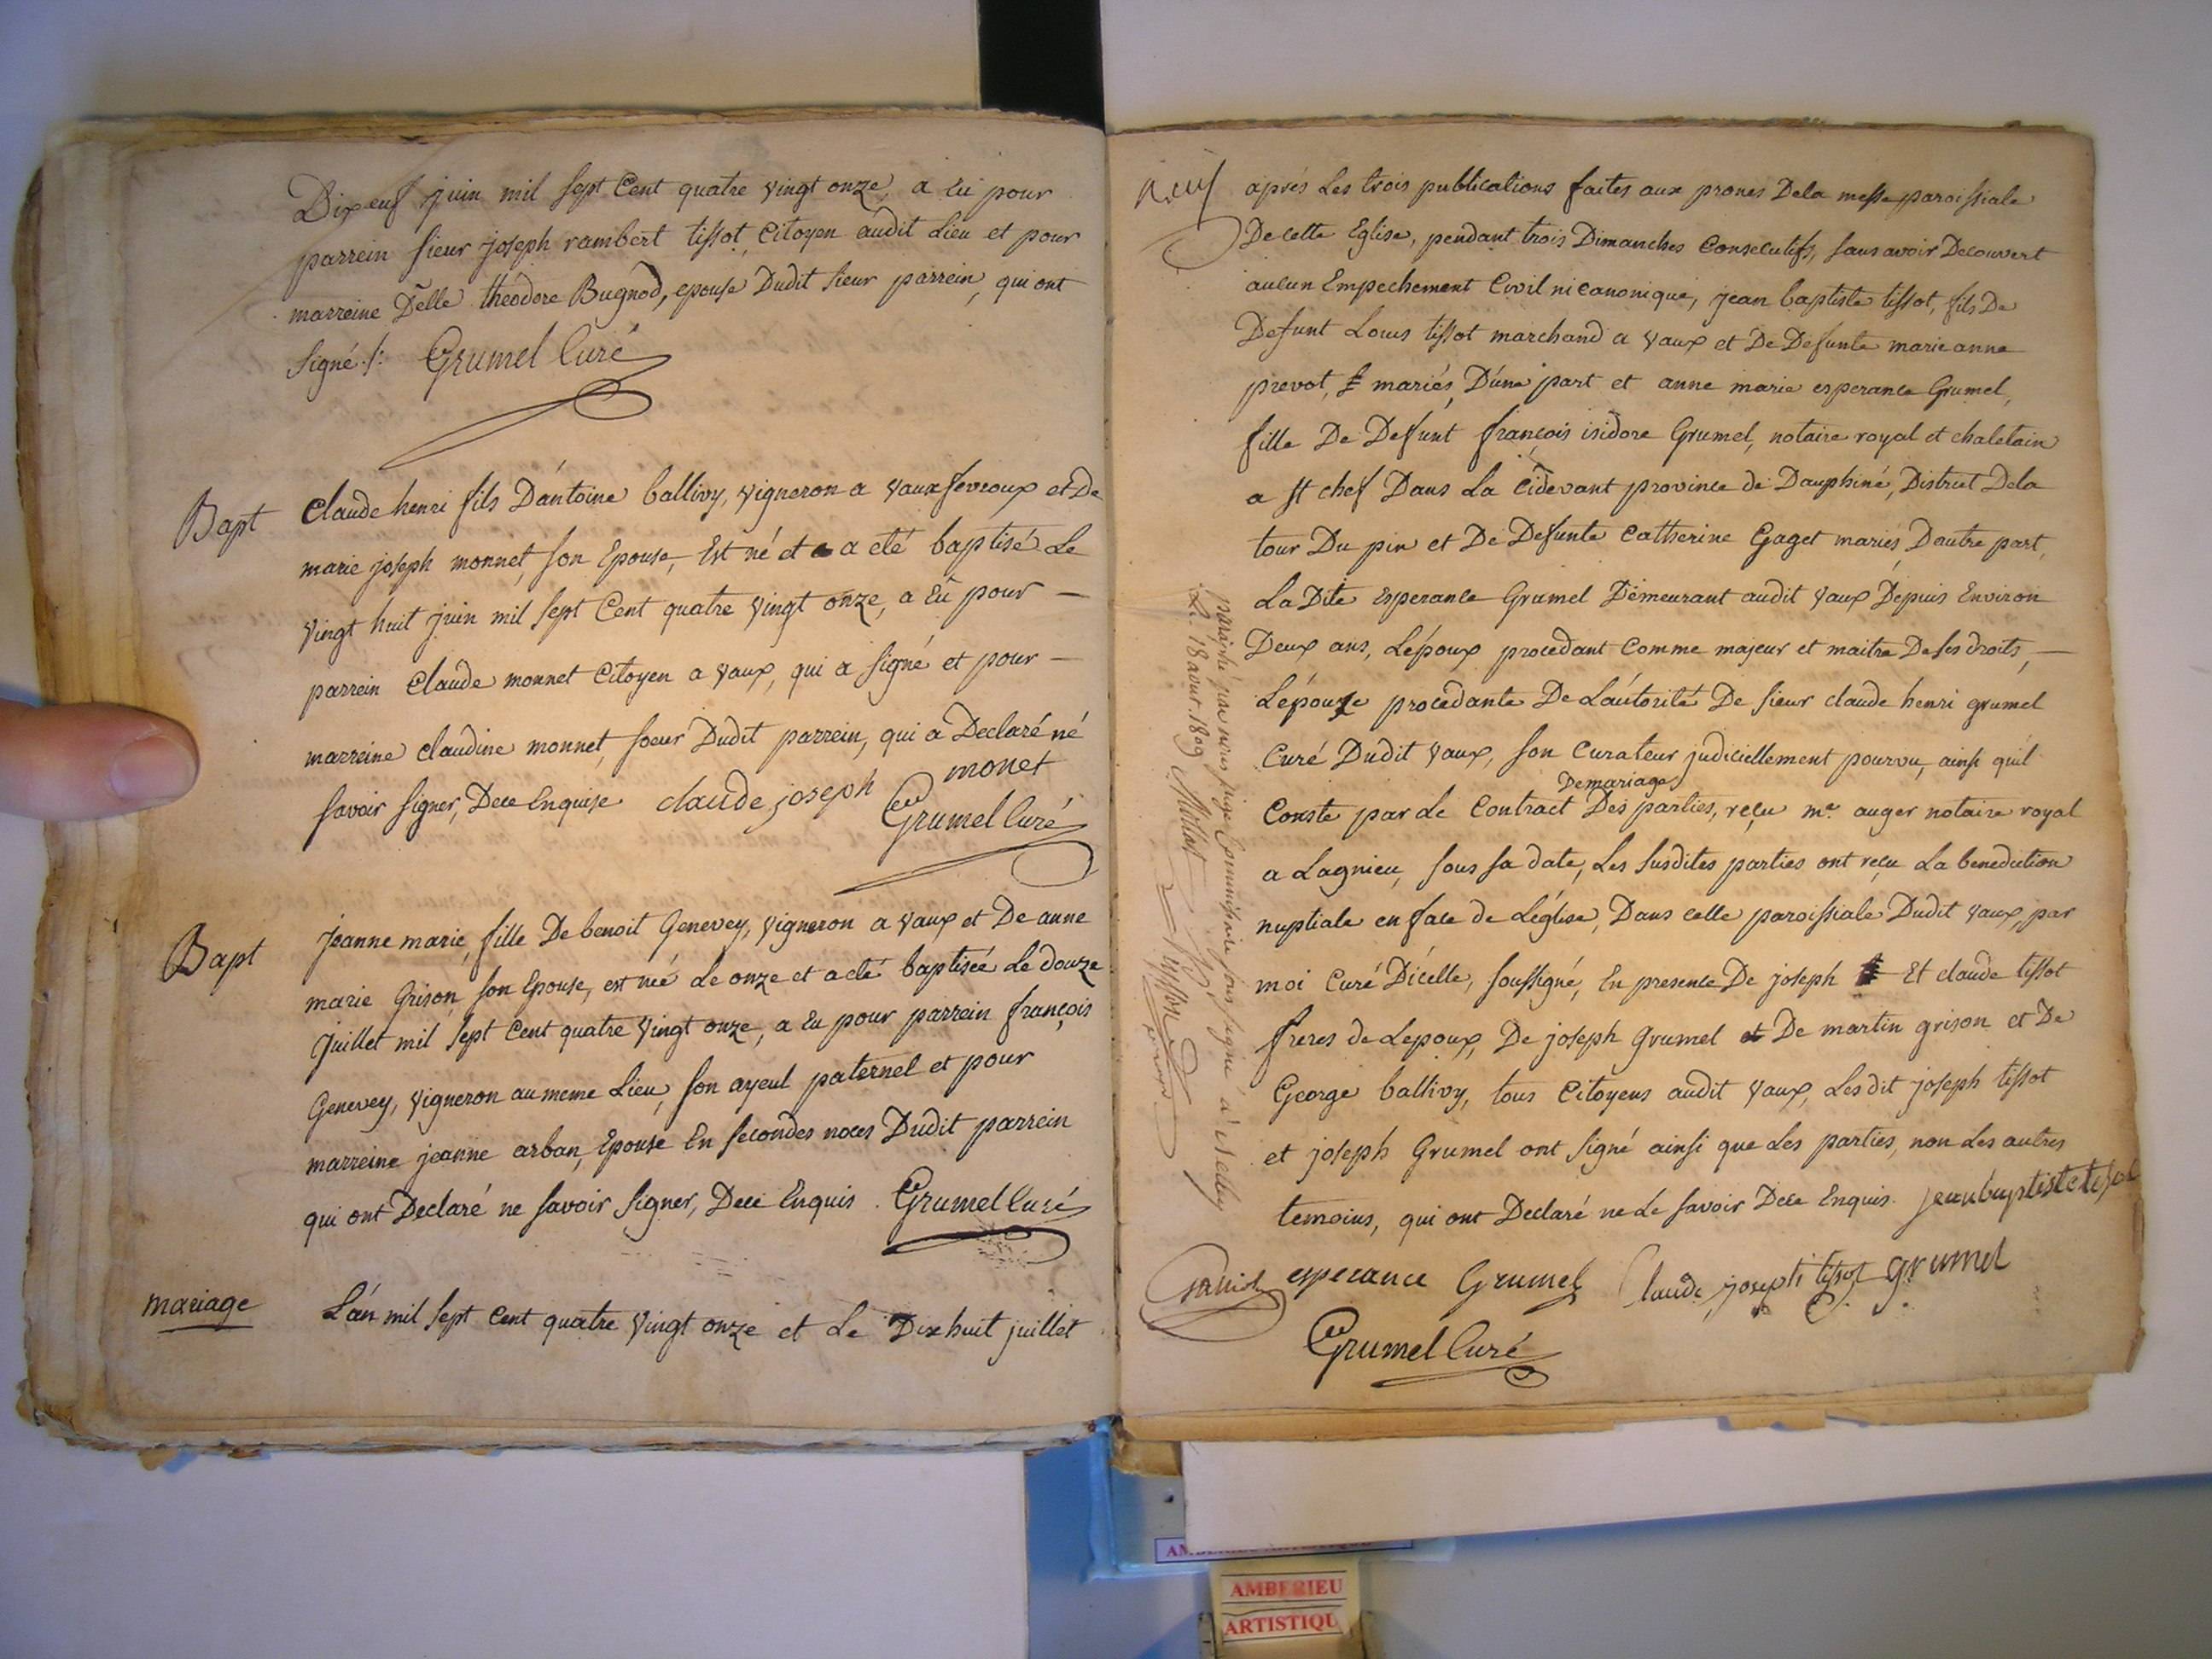 Dixneuf juin mil sept Cent quatre vingt onze, a eü pour
parrein sieur joseph rambert tissot, Citoyen audit Lieu et pour
marreine Delle théodore Bugnod, epouse Dudit sieur parrein, qui ont
signé./. Grumel Curé
Bapt
Claude henri fils D'antoine ballivy, vigneron a vaux fevroux et De
marie joseph monnet, son Epouse, Est né et a eté baptisé Le
vingt huit juin mil sept Cent quatre vingt onze, a Eü pour —
parrein Claude monnet Citoyen a vaux, qui a signé et pour —
marreine claudine monnet, soeur Dudit parrein, qui a Declaré né
savoir signer, Dece Enquise claude joseph monet
Grumel Curé
Bapt
Jeanne marie, fille De benoit Genevey, vigneron a vaux et De anne
marie Grison, son Epouse, est née Le onze et a eté baptisée Le douze
Juillet mil sept Cent quatre vingt onze, a Eu pour parrein françois
Genevey, vigneron au meme Lieu, son ayeul paternel et pour
marreine jeanne arban, Epouse En secondes noces Dudit parrein
qui ont Declaré ne savoir signer, Dece Enquis. Grumel Curé
mariage
L'an mil sept Cent quatre vingt onze et Le Dix huit juillet
neuf
après Les trois publications faites aux prones Dela messe paroissiale
De cette Eglise, pendant trois Dimanches Consecutifs, sans avoir Decouvert
aucun Empechement Civil ni canonique, jean baptiste tissot, fils De
Defunt Louis tissot marchand a vaux et De Defunte marie anne
prevot, mariés, D'une part et anne marie esperance Grumel,
fille De Defunt françois isidore Grumel, notaire royal et chatelain
a st chef Dans La cidevant province de Dauphiné, District Dela
tour Du pin et De Defunte Catherine Gaget mariés, D'autre part,
La Dite Esperance Grumel Demeurant audit vaux Depuis Environ
Deux ans, L'époux procedant Comme majeur et maitre De ses droits, —
L'épouse procedante De L'autorité De sieur claude henri grumel
Curé Dudit vaux, son Curateur judiciellement pourvu, ainsi quil
Conste par Le Contract Demariage Des parties, reçu me auger notaire royal
a Lagnieu, sous sa date, Les susdites parties ont reçu La benediction
nuptiale en face de L'église, Dans celle paroissiale Dudit vaux, par
moi Curé D'icelle, soussigné, En presence De joseph Et claude tissot
freres de Lepoux, De joseph Grumel De martin grison et De
George ballivy, tous Citoyens audit vaux, Lesdit joseph tissot
et joseph Grumel ont signé ainsi que Les parties, non Les autres
temoins, qui ont Declaré ne Le savoir Dece Enquis. jean baptiste tissot
esperance Grumel Claude joseph tissot grumel
Grumel Curé
paraphé par nous juge Commissaire sous signé a Belley
Le 18 aout 1809
AMBERIEU
ARTISTIQU